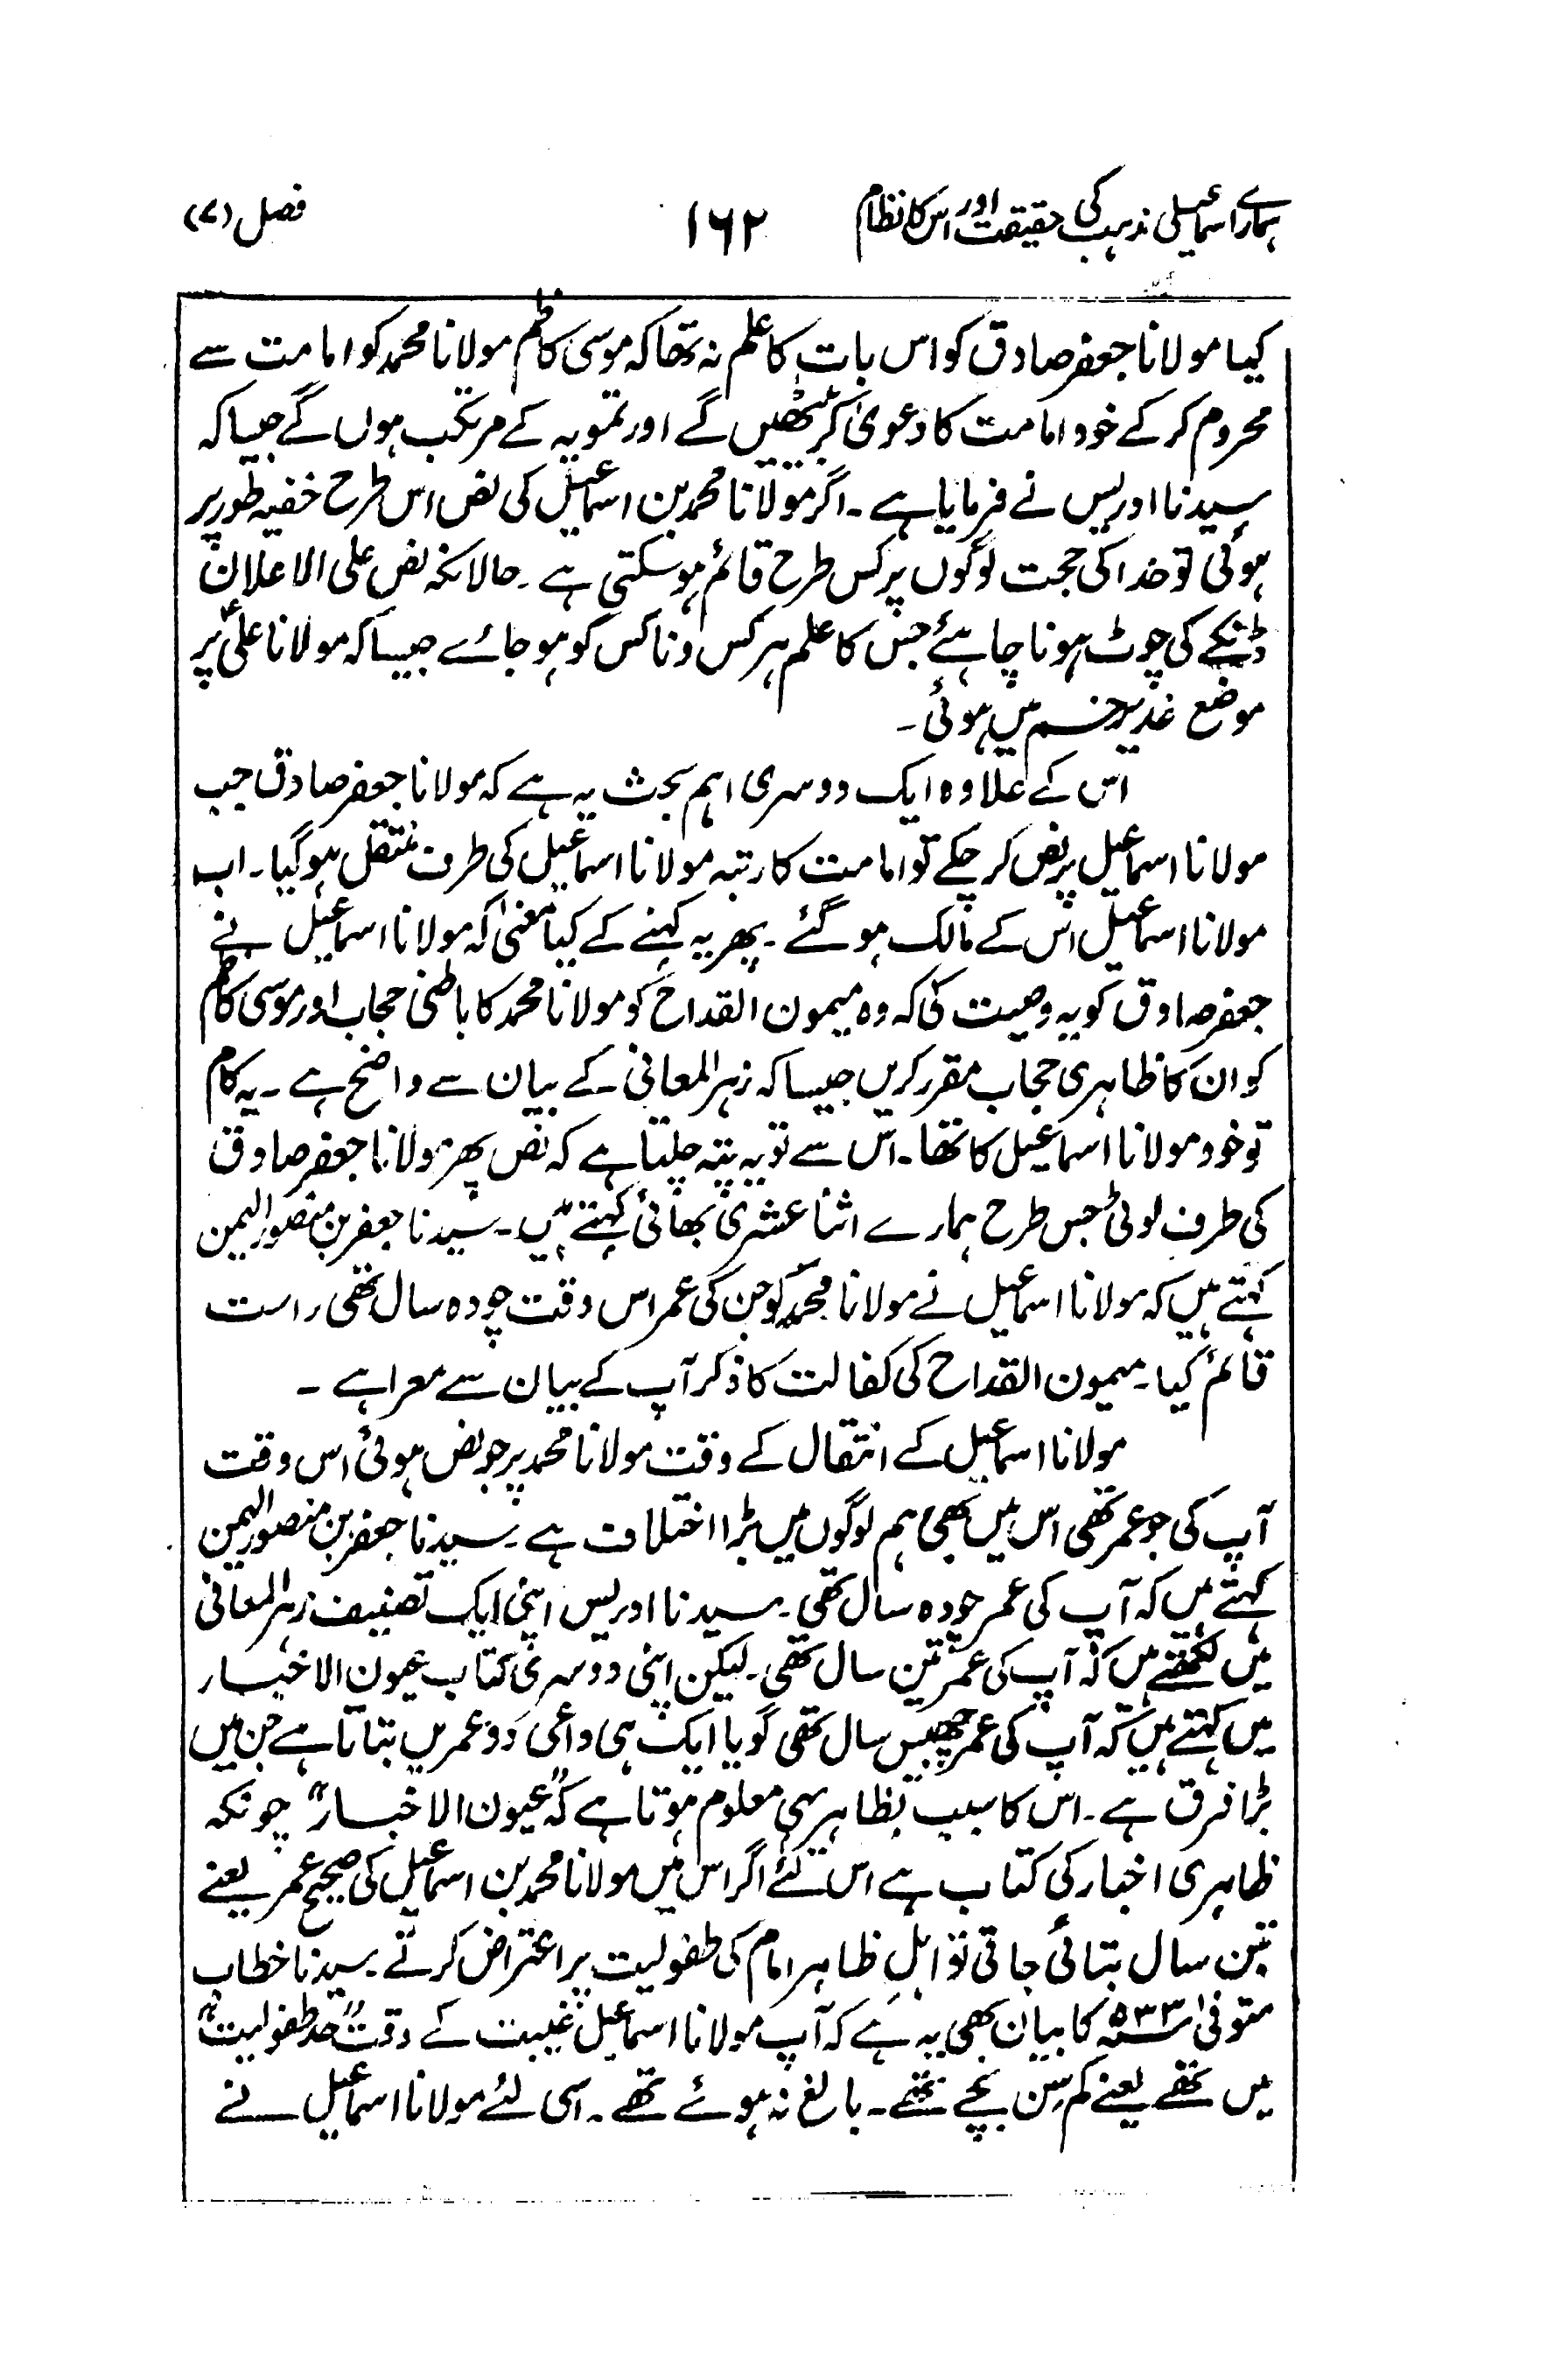 ہمارے اسماعیلی مذہب کی حقیقت اور اس کا نظام ۱۶۲ فصل (۷)
کیا مولانا جعفر صادق کو اس بات کا علم نہ تھا کہ موسی کاظم مولانا محمد کو امامت سے
محروم کرکے خود امامت کا دعویٰ کر بیٹھیں گے اور تمویہ کے مرتکب ہوں گے جیسا کہ
سیدنا ادریس نے فرمایا ہے ۔ اگر مولانا محمد بن اسماعیل کی نص اس طرح خفیہ طور پر
ہوئی تو خدا کی حجت لوگوں پر کس طرح قائم ہوسکتی ہے ۔ حالانکہ نص علی الاعلان
ڈنکے کی چوٹ ہونا چاہئے جس کا علم ہر کس و ناکس کو ہو جائے جیسا کہ مولانا علیؑ پر
موضع غدیر خم میں ہوئی ۔
اس کے علاوہ ایک دوسری اہم بحث یہ ہے کہ مولانا جعفر صادق جب
مولانا اسماعیل پر نص کرچکے تو امامت کا رتبہ مولانا اسماعیل کی طرف منتقل ہوگیا ۔ اب
مولانا اسماعیل اس کے مالک ہو گئے ۔ پھر یہ کہنے کے کیا معنیٰ کہ مولانا اسماعیل نے
جعفر صادق کو یہ وصیت کی کہ وہ میمون القداح کو مولانا محمد کا باطنی حجاب اور موسی کاظم
کو ان کا ظاہری حجاب مقرر کریں جیسا کہ زہر المعانی کے بیان سے واضح ہے ۔ یہ کام
تو خود مولانا اسماعیل کا تھا ۔ اس سے تو یہ پتہ چلتا ہے کہ نص پھر مولانا جعفر صادق
کی طرف لوٹی جس طرح ہمارے اثنا عشری بھائی کہتے ہیں ۔ سیدنا جعفر بن منصور الیمن
کہتے ہیں کہ مولانا اسماعیل نے مولانا محمد کو جن کی عمر اس وقت چودہ سال تھی راست
قائم کیا ۔ میمون القداح کی کفالت کا ذکر آپ کے بیان سے معرا ہے ۔
مولانا اسماعیل کے انتقال کے وقت مولانا محمد پر جو نص ہوئی اس وقت
آپ کی جو عمر تھی اس میں بھی ہم لوگوں میں بڑا اختلاف ہے ۔ سیدنا جعفر بن منصور الیمن
کہتے ہیں کہ آپ کی عمر چودہ سال تھی ۔ سیدنا ادریس اپنی ایک تصنیف زہر المعانی
میں لکھتے ہیں کہ آپ کی عمر تین سال تھی ۔ لیکن اپنی دوسری کتاب عیون الاخبار
میں کہتے ہیں کہ آپ کی عمر چھبیس سال تھی گویا ایک ہی داعی دو عمریں بتاتا ہے جن میں
بڑا فرق ہے ۔ اس کا سبب بظاہر یہی معلوم ہوتا ہے کہ ”عیون الاخبار“ چونکہ
ظاہری اخبار کی کتاب ہے اس لئے اگر اس میں مولانا محمد بن اسماعیل کی صحیح عمر یعنے
تین سال بتائی جاتی تو اہل ظاہر امام کی طفولیت پر اعتراض کرتے ۔ سیدنا خطاب
متوفیٰ ۵۳۳ھ کا بیان بھی یہ ہے کہ آپ مولانا اسماعیل غیبت کے وقت ”حد طفولیت“
میں تھے یعنے کم سن بچے تھے ۔ بالغ نہ ہوئے تھے ۔ اسی لئے مولانا اسماعیل نے